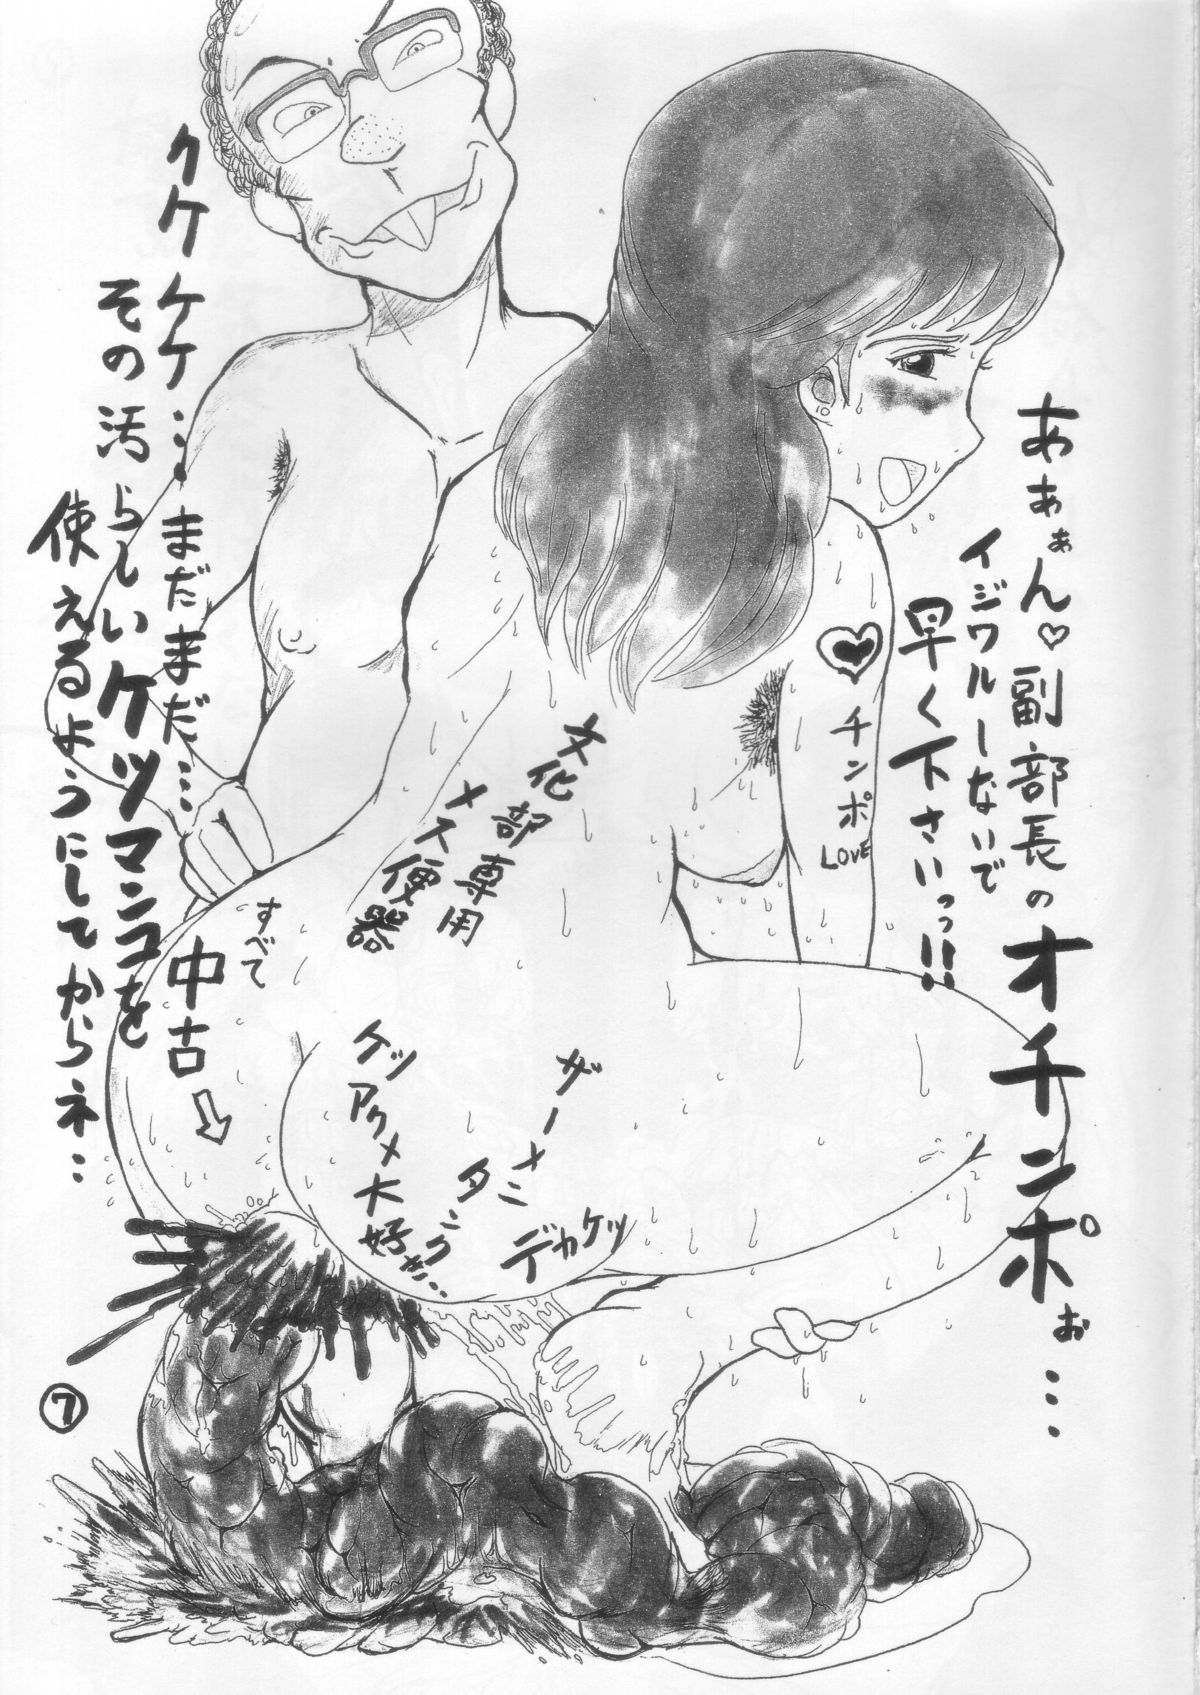 あぁぁん♡副部長のオチンポぉ…
イジワルーないで
早く下さいっっ!!
チンポ
LOVE
文化部専用
メス便器
ククケケケ…まだまだ…
その汚らしいケツマンコを
使えるようにしてからネ…
すべて
中古
ザーメン
タンク
デカケツ
ケツ
アクメ大好き…
7